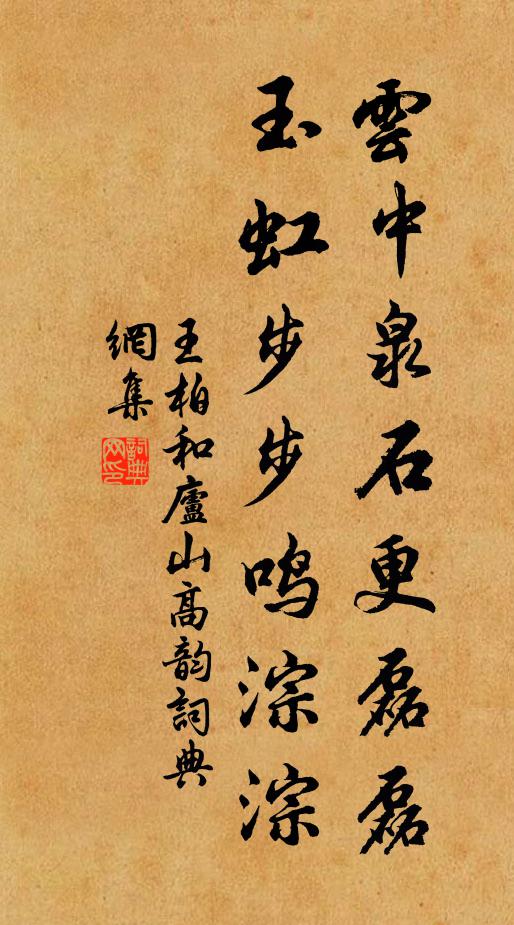 雲中泉石更磊磊
玉虹步步鸣淙淙
王柏和廬山高韵詞典
網集
詞典网印